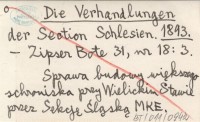 Die Verhandlungen
der Section Schlesien. 1893.
- Zipser Bote 31, nr 18: 3.
Sprawa budowy większego
schroniska przy Wielickim Stawie
przez Sekcję Śląską MKE.